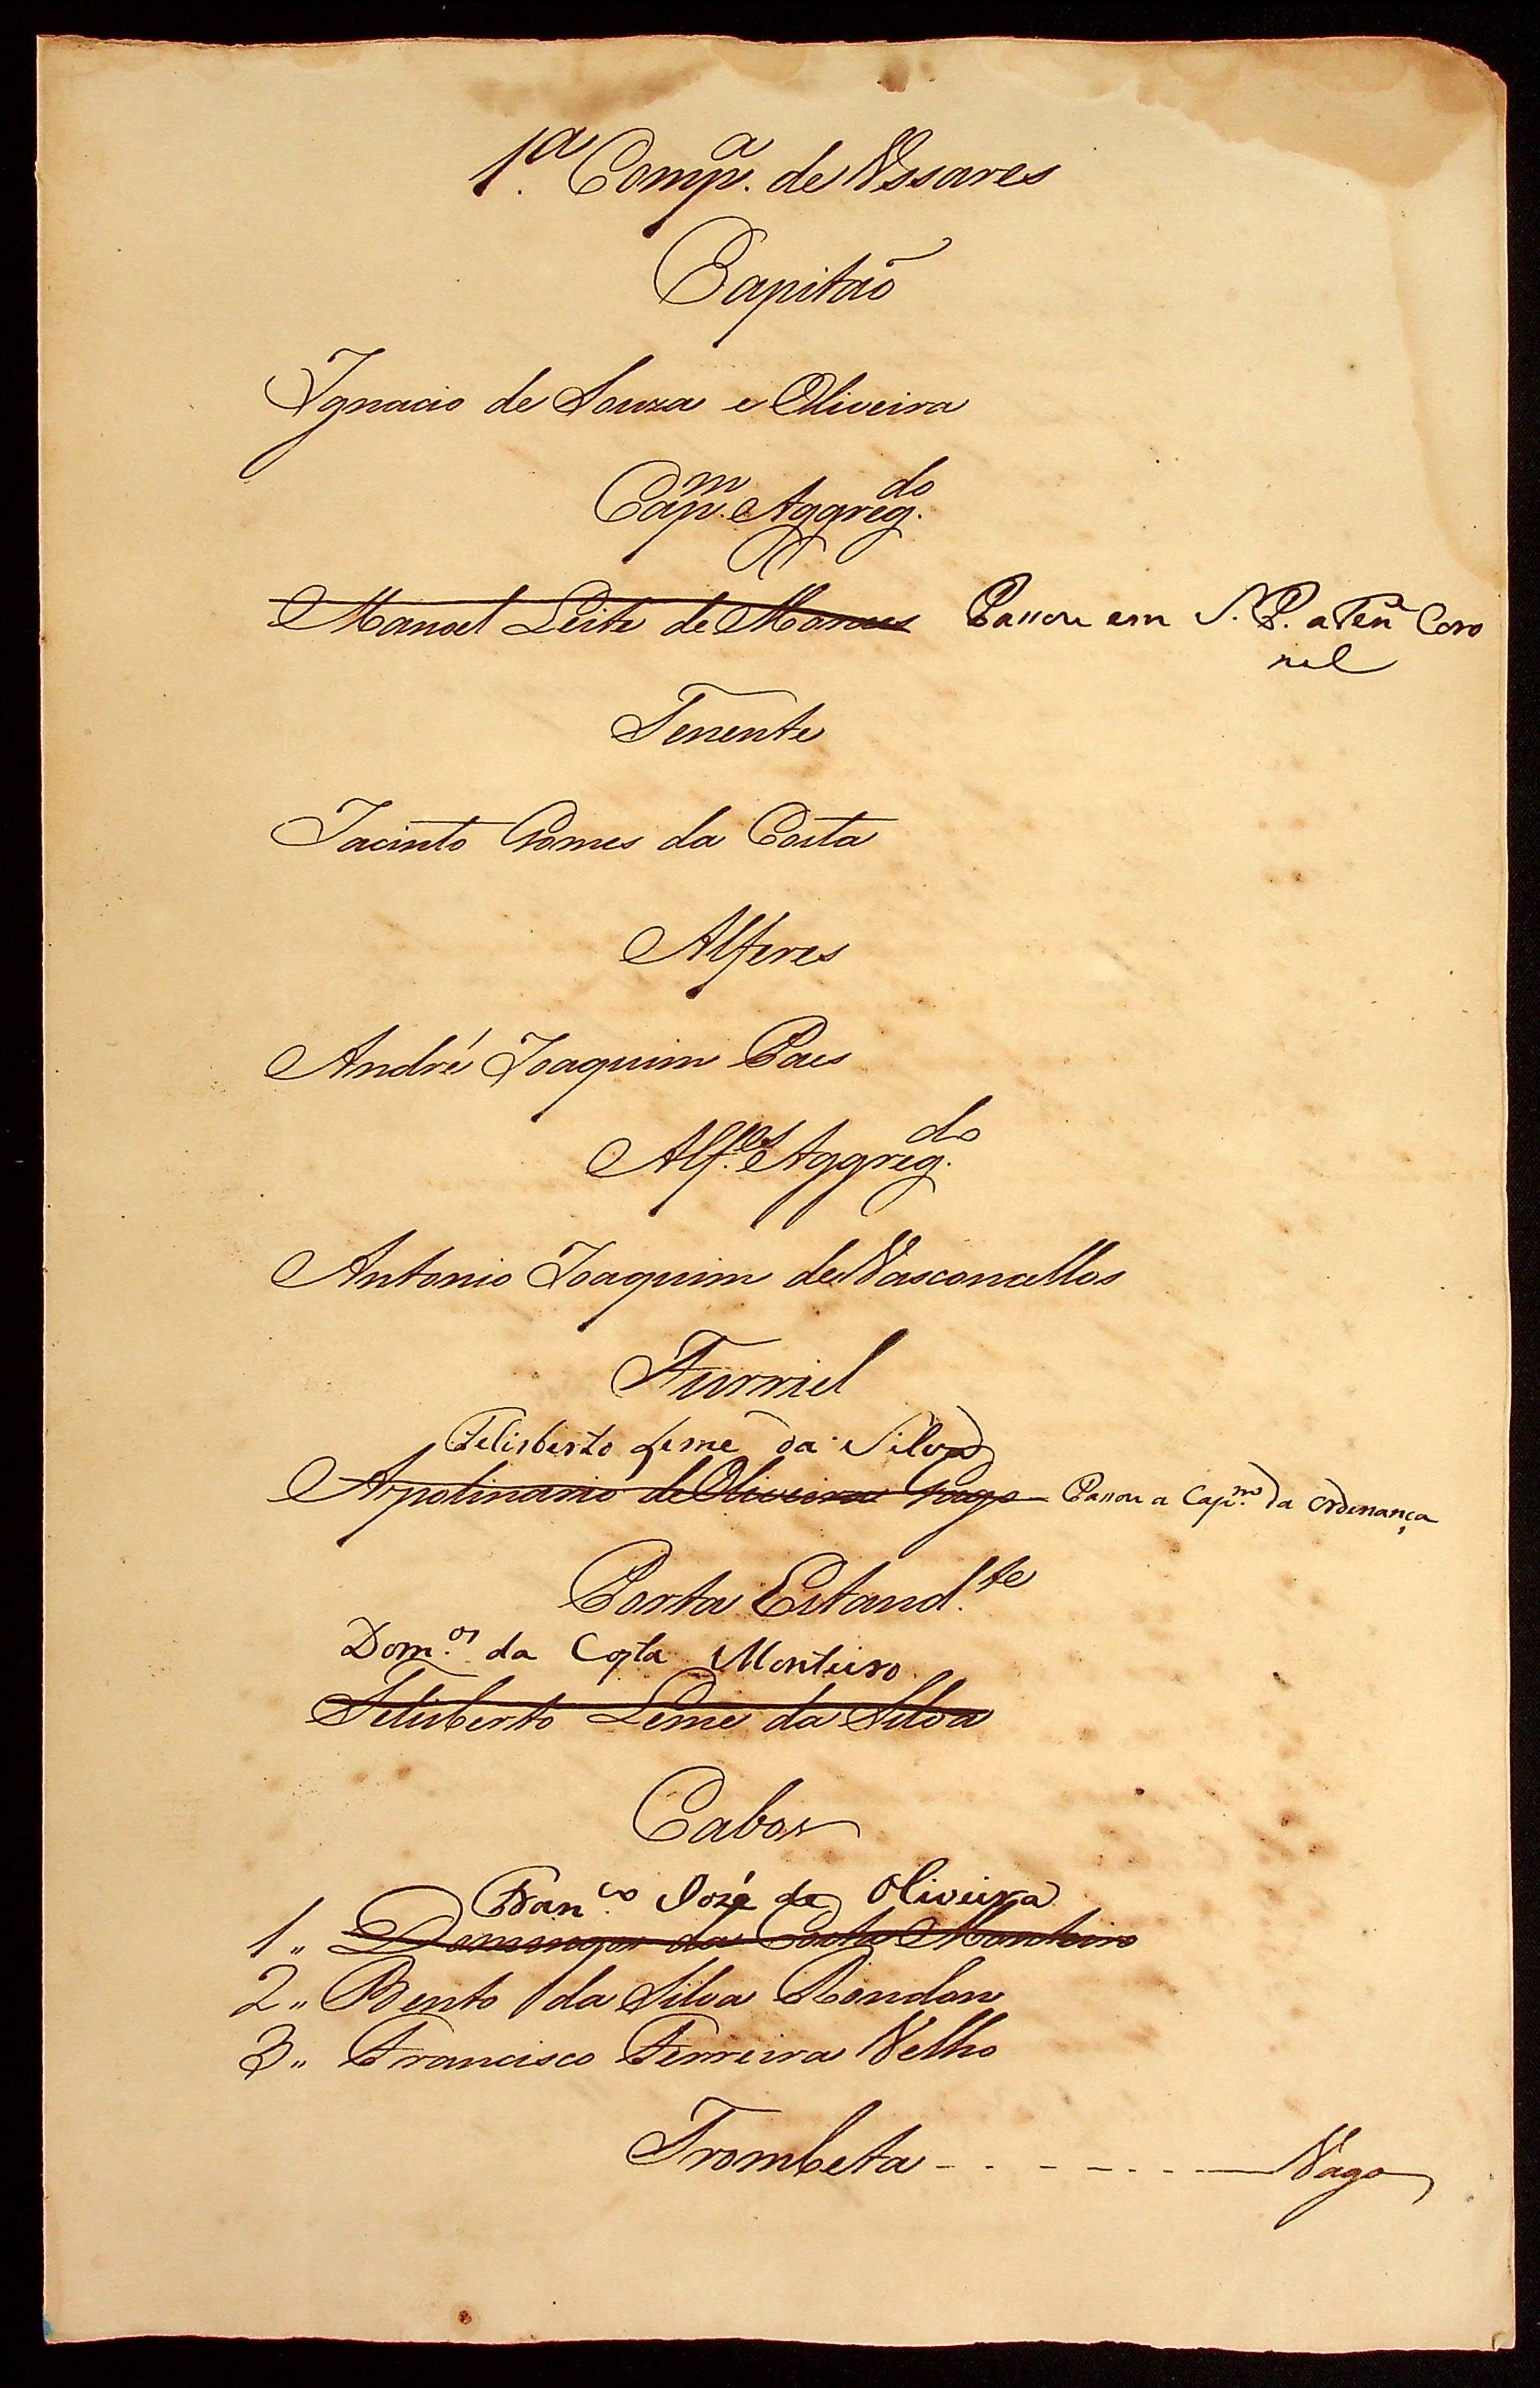 1.ª Comp.ª de Vssares
Capitaõ
Ignacio de Souza e Oliveira
Cap.m Aggreg.do
Manoel Leite de Moraes Passou em S. P. a Ten.e Coro
nel
Tenente
Jacinto Gomes da Costa
Alferes
André Joaquim Paes
Alf.es Aggreg.do
Antonio Joaquim de Vasconcellos
Furriel
Felisberto Leme da Silva
Apolinario de Oliveira Passou a Cap.m da Ordenança
Porta Estand.te
Dom.os da Costa Monteiro
Felisberto Leme da Silva
Cabos
Fran.co José de Oliveira
1,, Domingos da Costa Monteiro
2,, Bento da Silva Rondon
3,, Francisco Ferreira Velho
Trombeta - - - - - - - Vago